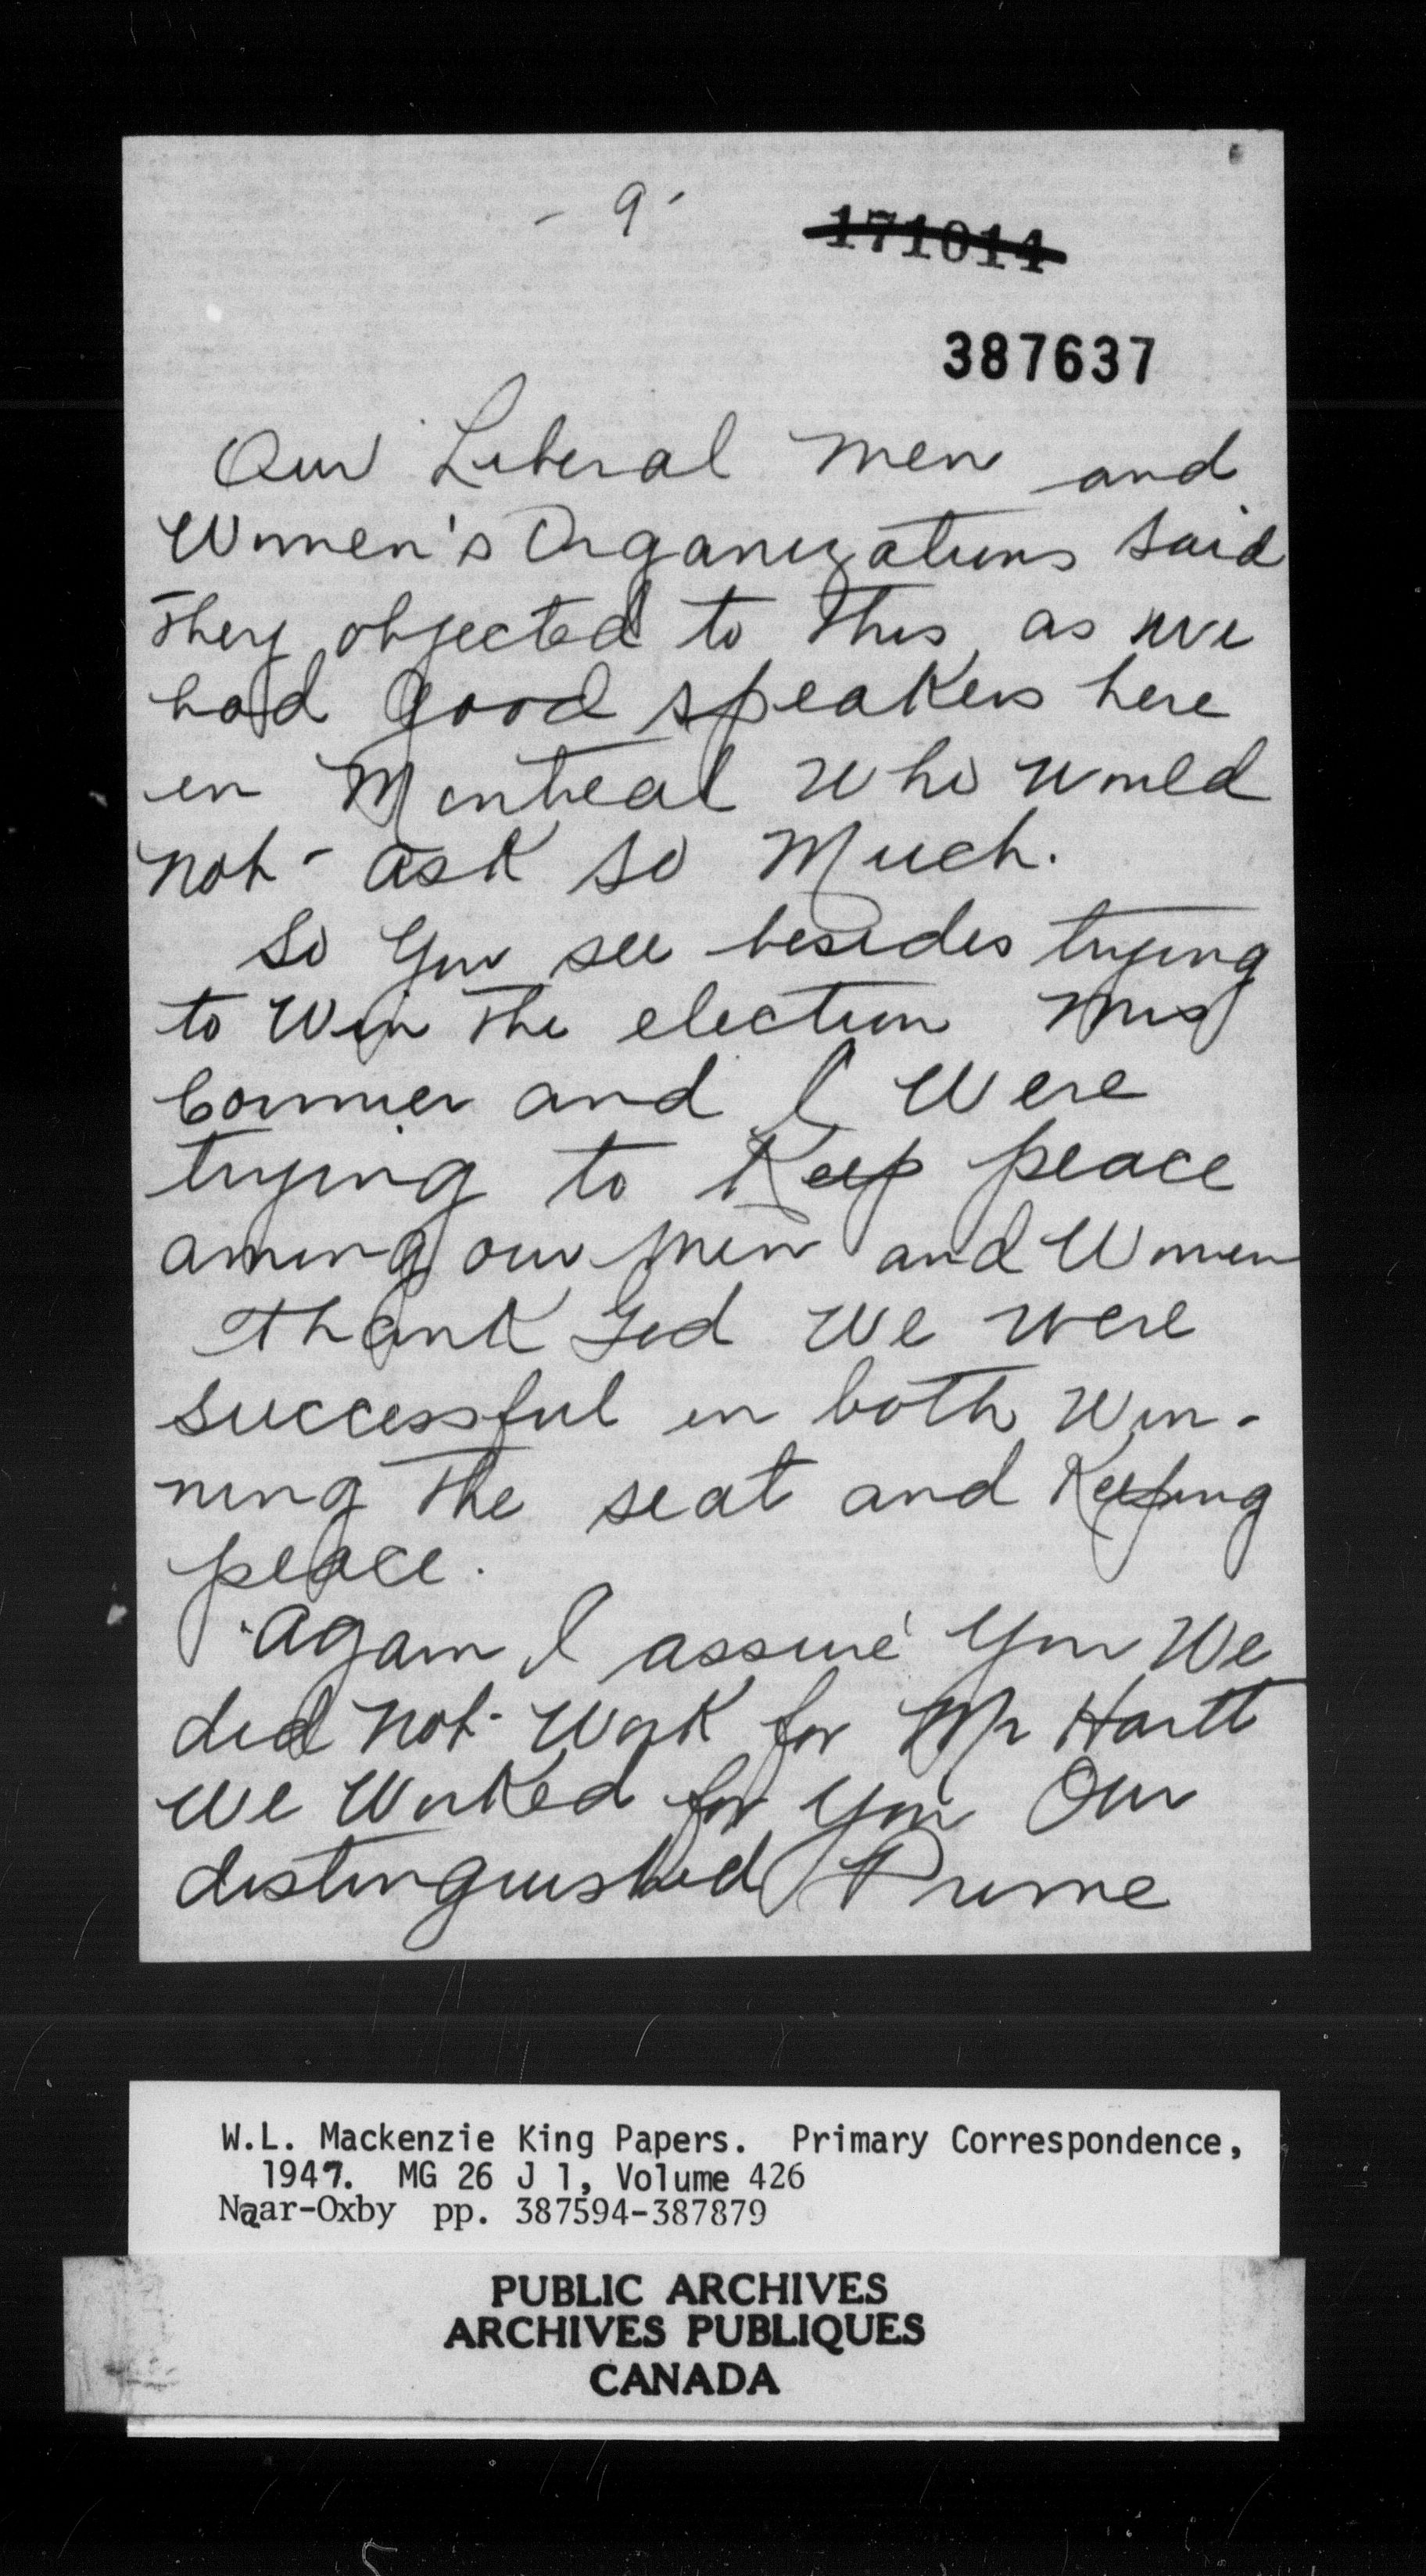 - 9 -
171014
387637
Our Liberal men and
Women's Organizations said
They objected to this as we
had good speakers here
in Montreal who would
not ask so much.
So you see besides trying
to win the election Mrs
Cormier and I were
trying to keep peace
among our men and women
Thank God we were
successful in both win-
ning the seat and keeping
peace.
Again I assure you we
did not work for Mr Hartt
we worked for you our
distinguished Prime
W.L. Mackenzie King Papers. Primary Correspondence,
1947. MG 26 J 1, Volume 426
Naar-Oxby pp. 387594-387879
PUBLIC ARCHIVES
ARCHIVES PUBLIQUES
CANADA